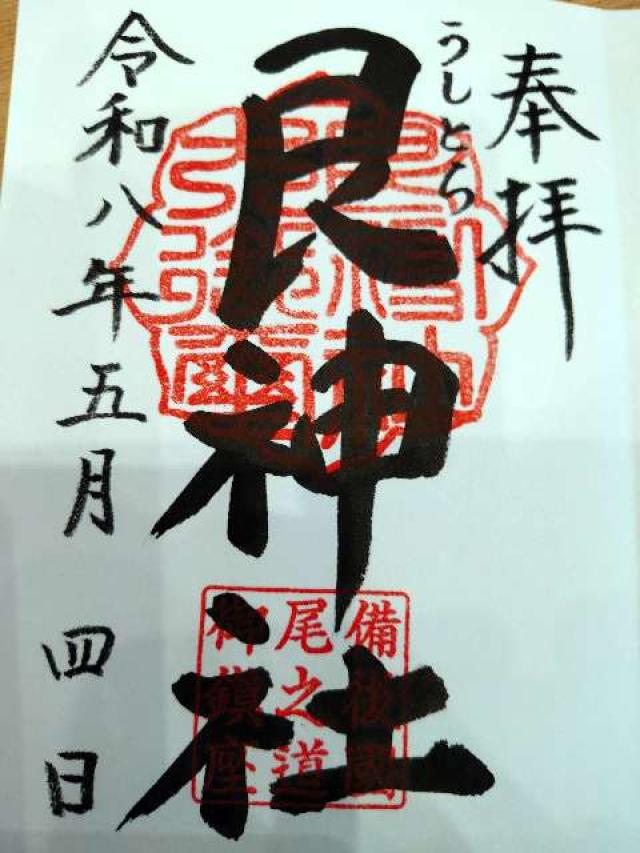 奉拝
うしとら
艮神社
備後國
尾之道
御鎮座
令和八年五月四日